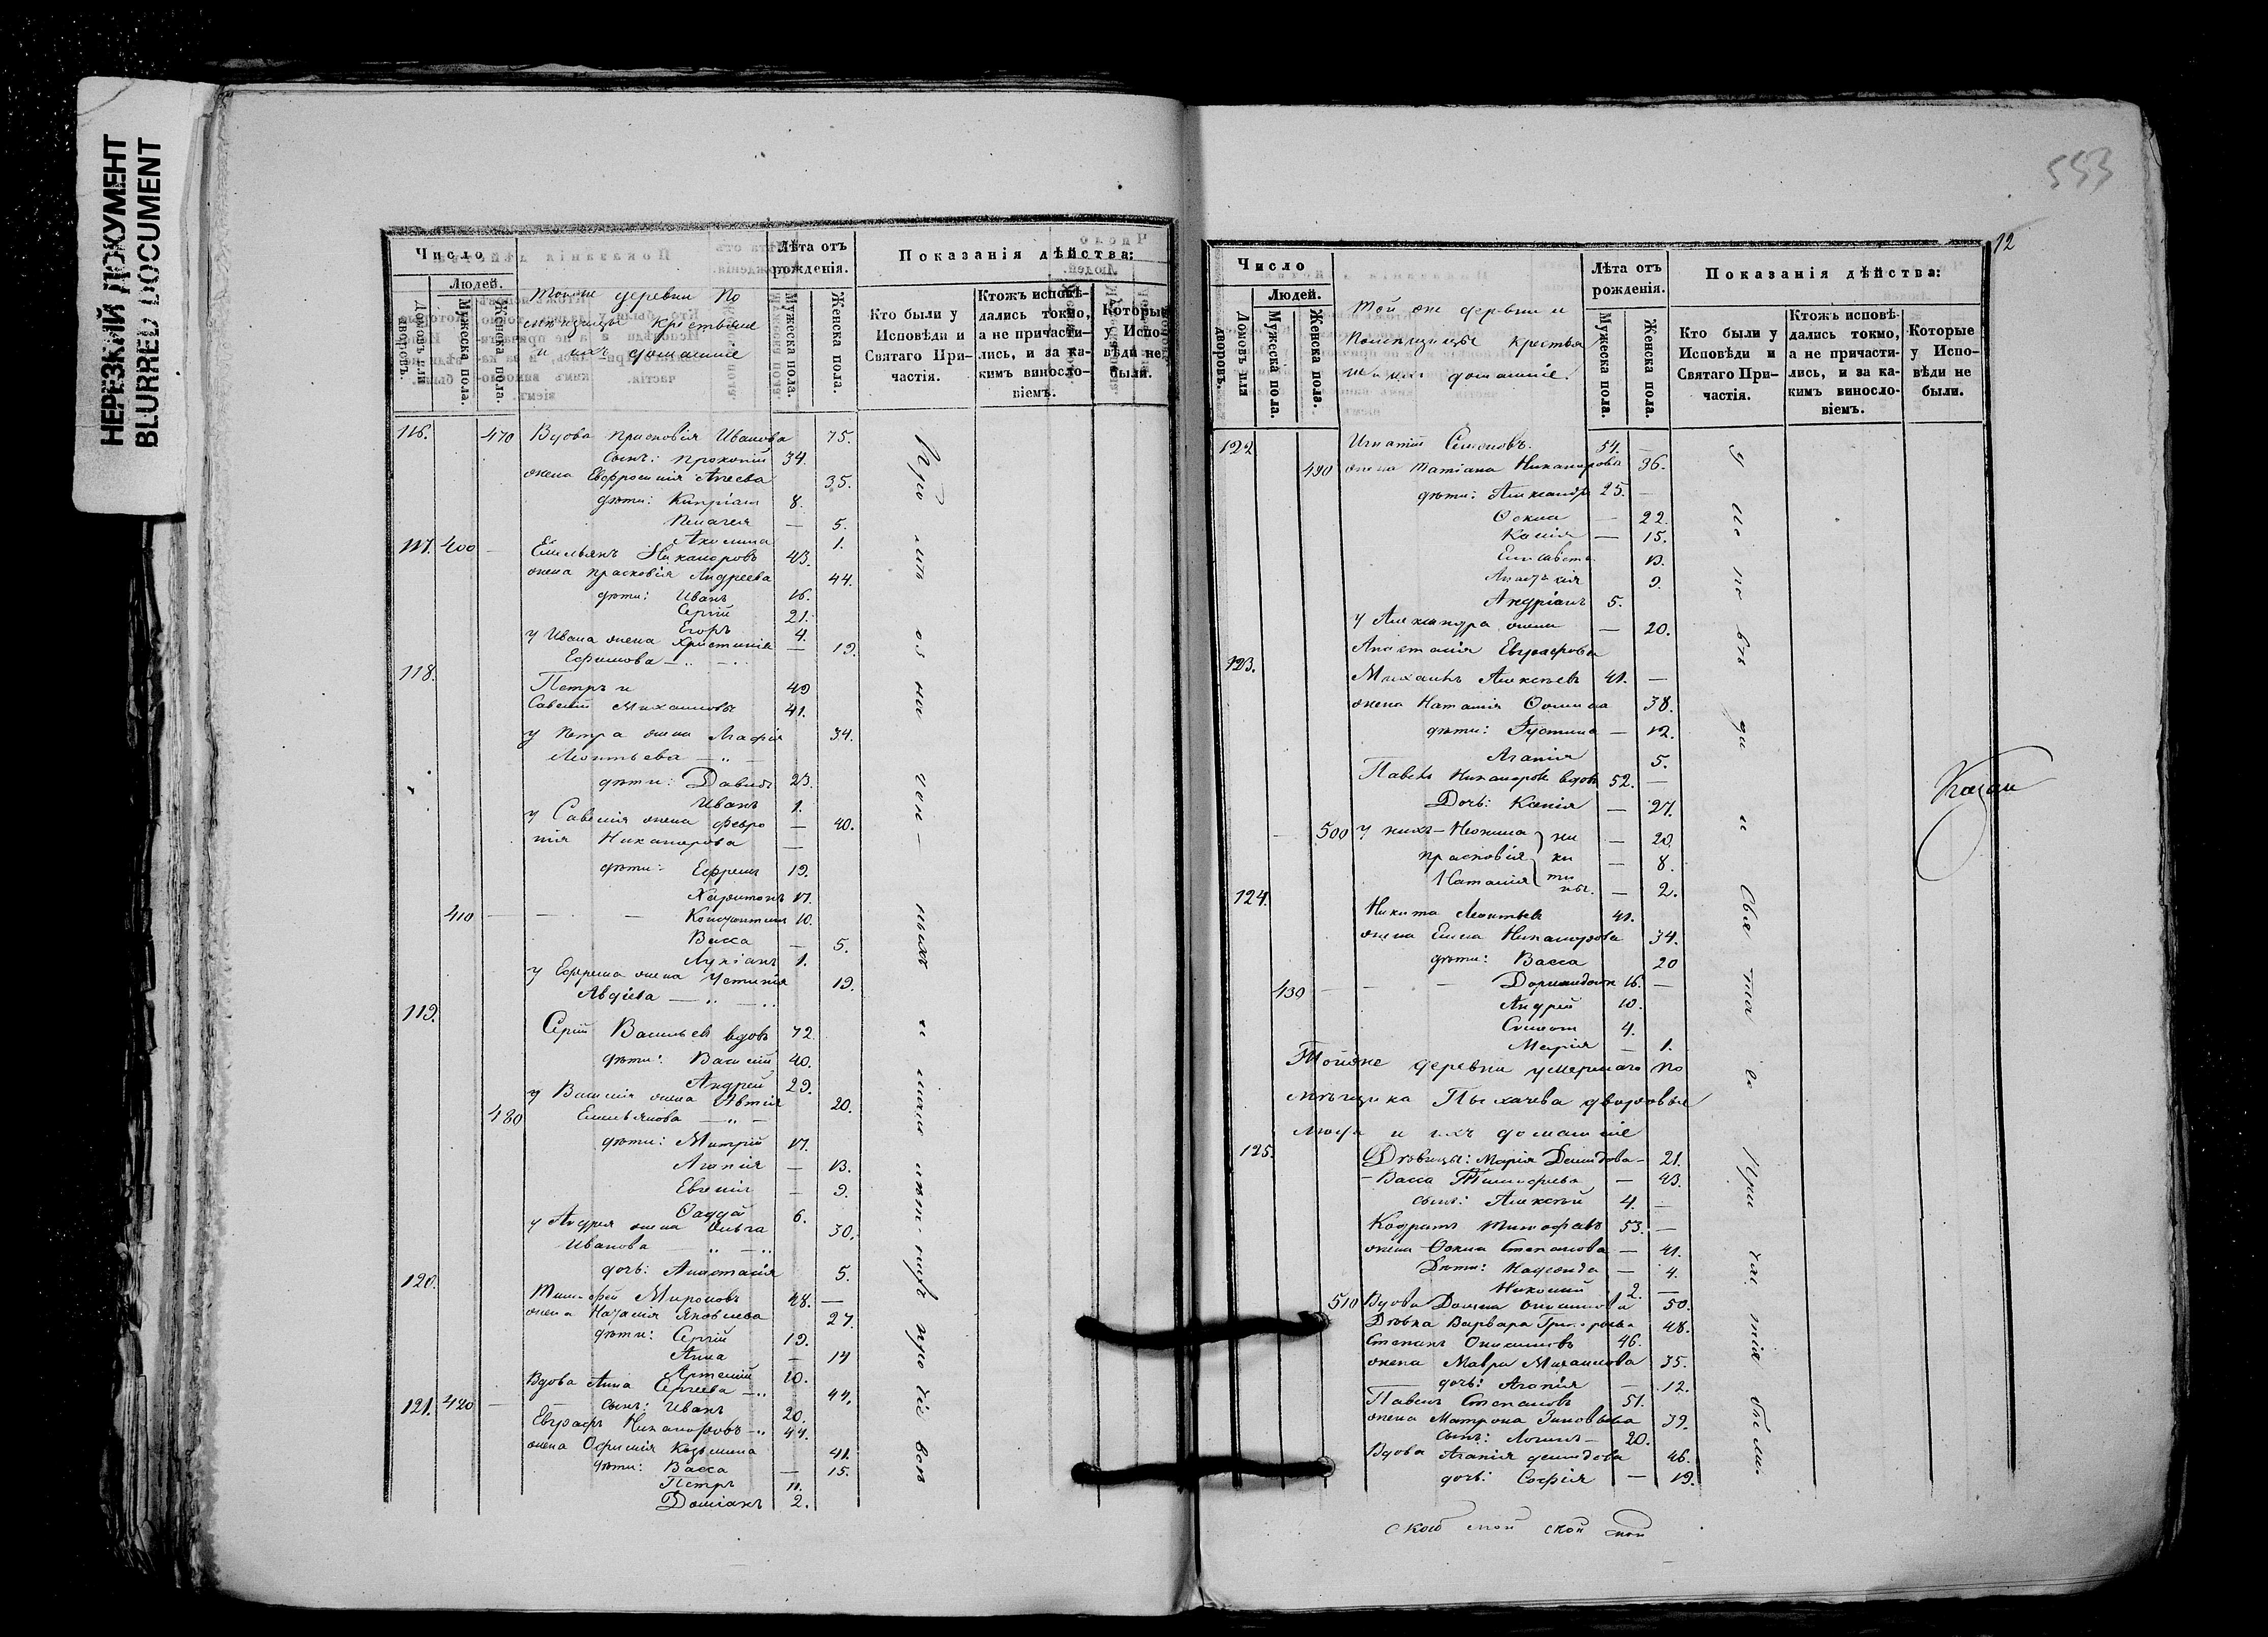 НЕРЕЗКИЙ ДОКУМЕНТ
BLURRED DOCUMENT
Число
Людей.
Домовъ или дворовъ.
Мужеска пола.
Женска пола.
Тойже деревни по
мѣщицы крестьяне
и ихъ домашніе
Лѣта отъ рожденія.
Мужеска пола.
Женска пола.
Показанія дѣйства:
Кто были у Исповѣди и Святаго Причастія.
Ктожъ исповѣдались токмо, а не причастились, и за какимъ винословіемъ.
Которые у Исповѣди не были.
116. 470 Вдова Прасковія Иванова 75.
сынъ: Прокопій 34.
жена Евфросинія 35.
дѣти: Кипріанъ 8.
Пелагея — 5.
Акилина 1.
117. 400 — Емельянъ Никаноровъ 43.
жена Прасковія Андреева 44.
дѣти: Иванъ 16.
Сергій 21.
Егоръ 4.
у Ивана жена Христинія — 19.
Ефимова — " —
118. Петръ и 49
Савелій Михаиловъ 41.
у Петра жена Агафія 34.
Леонтьева — " —
дѣти: Давидъ 23.
Иванъ 1.
у Савелія жена Февро — 40.
нія Никанорова —
дѣти: Ефремъ 19.
Харитонъ 17.
410 — — — Константинъ 10.
Васса — 5.
Лукіанъ 1.
у Ефрема жена Устинія 19.
Авдіева — " —
119. Сергій Васильевъ вдовъ 72.
дѣти: Василій 40.
Андрей 29.
у Василія жена 20.
480 Емельянова — " —
дѣти: Митрій 17.
Агапія — 13.
Евгенія — 9.
Фаддей 6.
у Андрея жена Ольга 30.
Иванова — " —
дочь: Анастасія 5.
120. Тимофей Мироновъ 48. —
жена Наталія Яковлева 27.
дѣти: Сергій 19.
Анна — 14
Артемій 10.
Вдова Анна Сергеева 44.
121. 420 — сынъ: Иванъ 20.
Евграфъ Никаноровъ 44.
жена Офимія Козьмина 41.
дѣти: Васса — 15.
Петръ 11.
Доміанъ 2.
553
12
Число
Людей.
Домовъ или дворовъ.
Мужеска пола.
Женска пола.
Той же деревни и
помѣщицы крестья
не и ихъ домашніе.
Лѣта отъ рожденія.
Мужеска пола.
Женска пола.
Показанія дѣйства:
Кто были у Исповѣди и Святаго Причастія.
Ктожъ исповѣдались токмо, а не причастились, и за какимъ винословіемъ.
Которые у Исповѣди не были.
122 Игнатій Семеновъ. 54. —
490 жена Татіана Никанорова 36.
дѣти: Александръ 25. —
Фекла — 22.
Ксенія — 15.
Елисавета 13.
9.
Андріанъ 5.
у Александра жена — 20.
Анастасія Евграфова
123. Михаилъ Алексѣевъ 41. —
жена Наталія Фомина 38.
дѣти: Іустина — 12.
Агапія 5.
Павелъ Никаноровъ вдовъ 52. —
Дочь: Ксенія — 27.
500 у нихъ — 20.
Прасковія — 8.
Наталія — 2.
124. Никита Леонтьевъ 41.
жена Елена Никанорова 34.
дѣти: Васса 20
430 — — — Доримедонтъ 16. —
Андрей 10.
4.
Марія — 1.
Тойже деревни умершаго по
мѣщика Пыхачева дворовые
люди и ихъ домашніе
125. Дѣвицы: Марія Демидова — 21.
— Васса Тимофеева — 43.
сынъ: Алексѣй 4. —
Кодратъ Тимофеевъ 53. —
жена Фекла Степанова — 41.
Дѣти: Надежда — 4.
Николай 2. —
510 Вдова Домна 50.
Дѣвка Варвара Григорьева 48.
Степанъ 46.
жена Мавра Михаилова 35.
дочь: Агапія — 12.
Павелъ Степановъ 51.
жена Матрона Зиновьева 39.
сынъ: Логинъ — 20.
Вдова Агапія Демидова 46.
дочь: Софія — 19.
у исповѣди и Святаго Причастія были